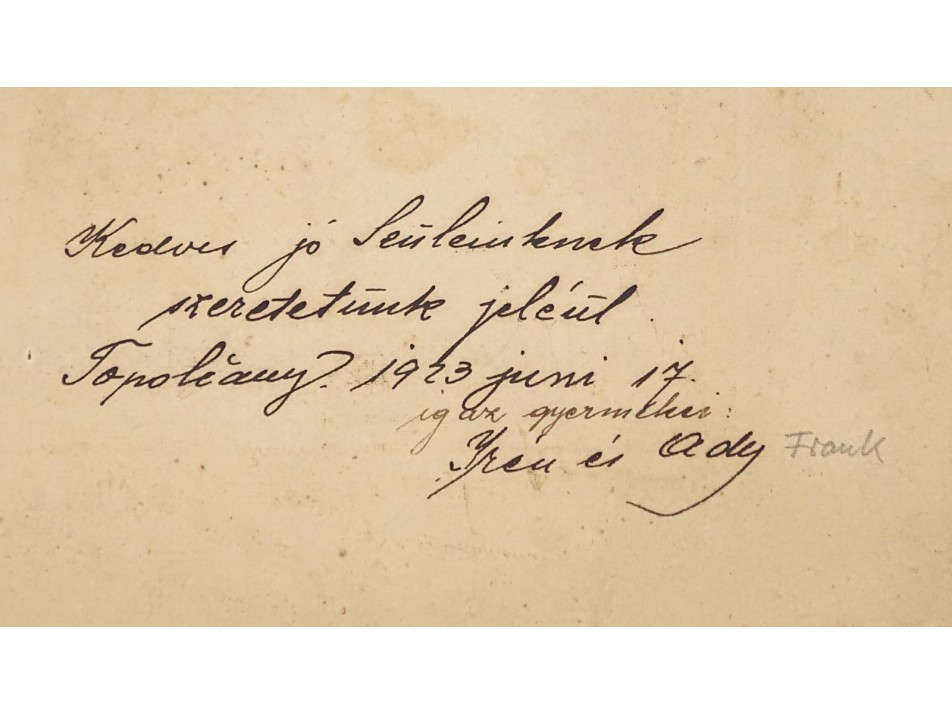 Kedves jó Szüleinknek
szeretetünk jeléül.
Topolčany. 1923 juni 17.
igaz gyermekei:
Irén és Ady Frank